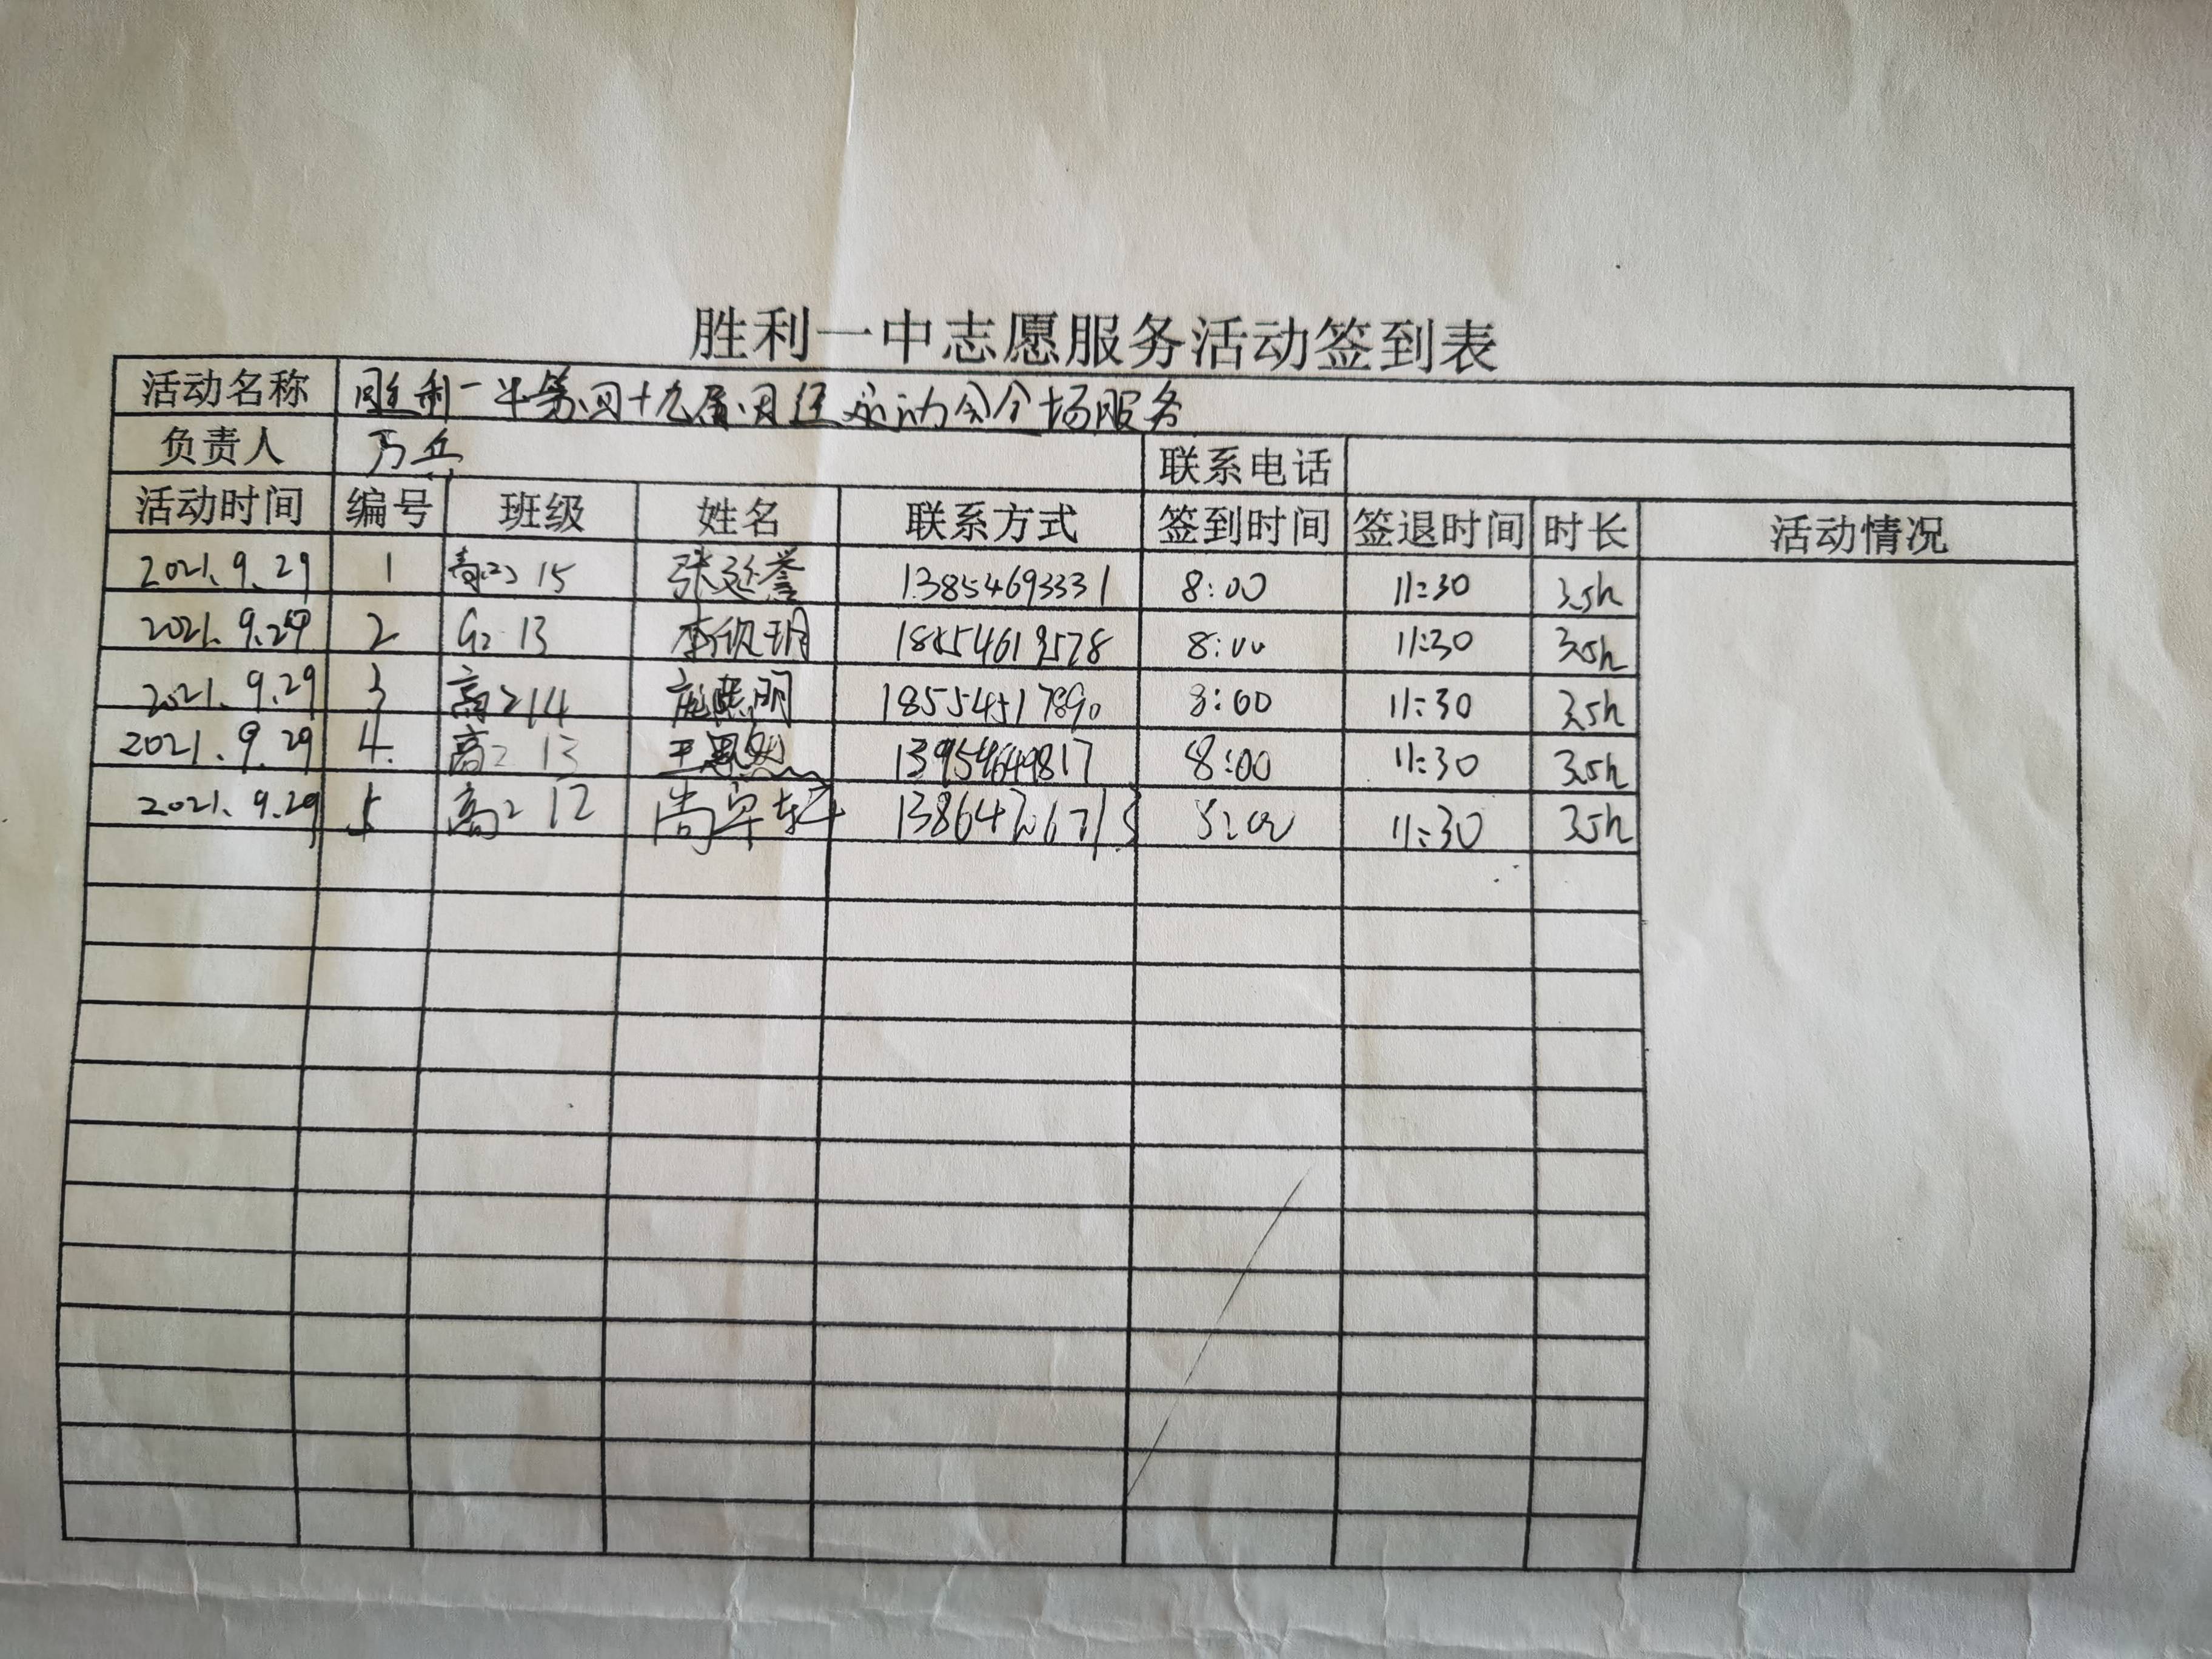 胜利一中志愿服务活动签到表
活动名称 胜利一中第四十九届田径运动会全场服务
负责人 万兵 联系电话
活动时间 编号 班级 姓名 联系方式 签到时间 签退时间 时长 活动情况
2021.9.29 1 高(2) 15 张延誉 13854693331 8:00 11:30 3.5h
2021.9.29 2 G2 13 李欣玥 8:00 11:30 3.5h
2021.9.29 3 高214 18554517890 8:00 11:30 3.5h
2021.9.29 4. 高2 13 13954649817 8:00 11:30 3.5h
2021.9.29 5 高2 12 8:00 11:30 3.5h